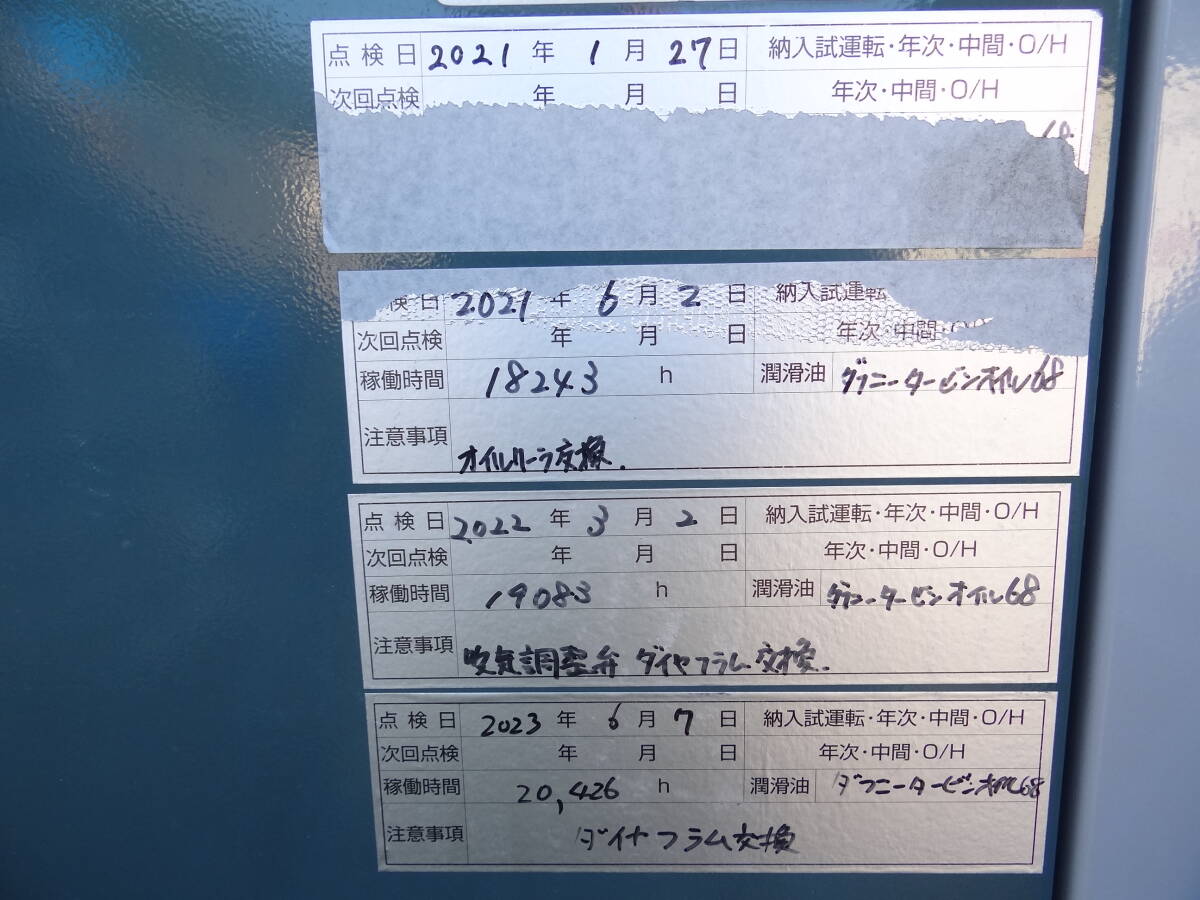 点検日 2021 年 1 月 27 日 納入試運転・年次・中間・O/H
次回点検 年 月 日 年次・中間・O/H
検日 2021 年 6 月 2 日 納入試運転
次回点検 年 月 日 年次・中間・O/
稼働時間 18243 h 潤滑油 ダフニータービンオイル68
注意事項 オイルクーラ交換.
点検日 2022 年 3 月 2 日 納入試運転・年次・中間・O/H
次回点検 年 月 日 年次・中間・O/H
稼働時間 19083 h 潤滑油 ダフニータービンオイル68
注意事項 吸気調整弁 ダイヤフラム交換.
点検日 2023 年 6 月 7 日 納入試運転・年次・中間・O/H
次回点検 年 月 日 年次・中間・O/H
稼働時間 20,426 h 潤滑油 ダフニータービンオイル68
注意事項 ダイヤフラム交換